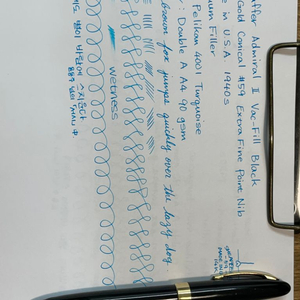 ffer Admiral II Vac-Fill Black
Gold Conical #59 Extra Fine Point Nib
e in U.S.A 1940s
uum Filler
: Pelikan 4001 Turquoise
: Double A A4 90 gsm
brown fox jumps quickly over the lazy dog.
wetness
별이 바람에 스치운다